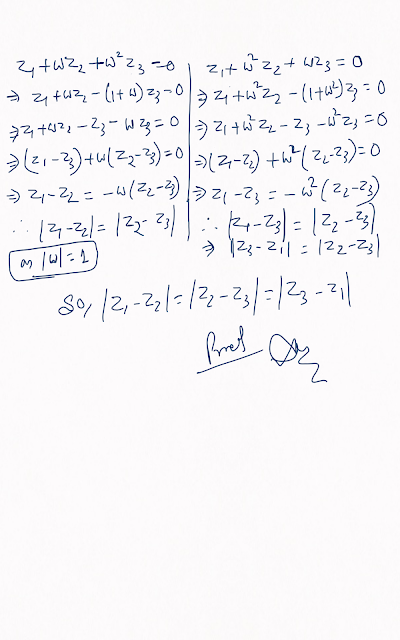 z₁ + ωz₂ + ω²z₃ = 0
⇒ z₁ + ωz₂ - (1+ω)z₃ = 0
⇒ z₁ + ωz₂ - z₃ - ωz₃ = 0
⇒ (z₁ - z₃) + ω(z₂ - z₃) = 0
⇒ z₁ - z₂ = -ω(z₂ - z₃)
∴ |z₁ - z₂| = |z₂ - z₃|
as |ω| = 1
z₁ + ω²z₂ + ωz₃ = 0
⇒ z₁ + ω²z₂ - (1+ω²)z₃ = 0
⇒ z₁ + ω²z₂ - z₃ - ω²z₃ = 0
⇒ (z₁ - z₂) + ω²(z₂ - z₃) = 0
⇒ z₁ - z₃ = -ω²(z₂ - z₃)
∴ |z₁ - z₃| = |z₂ - z₃|
⇒ |z₃ - z₁| = |z₂ - z₃|
So, |z₁ - z₂| = |z₂ - z₃| = |z₃ - z₁|
Proved